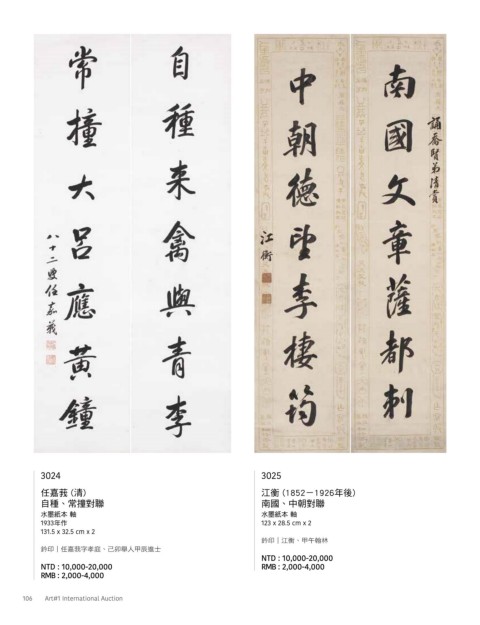 自種來禽與青李
常撞大呂應黃鐘
八十二叟任嘉莪
誦喬賢弟清賞
南國文章薩都刺
中朝德望李棲筠
江衡
3024
任嘉莪 (清)
自種、常撞對聯
水墨紙本 軸
1933年作
131.5 x 32.5 cm x 2
鈐印｜任嘉莪字孝庭、己卯舉人甲辰進士
NTD : 10,000-20,000
RMB : 2,000-4,000
3025
江衡 (1852－1926年後)
南國、中朝對聯
水墨紙本 軸
123 x 28.5 cm x 2
鈐印｜江衡、甲午翰林
NTD : 10,000-20,000
RMB : 2,000-4,000
106 Art#1 International Auction